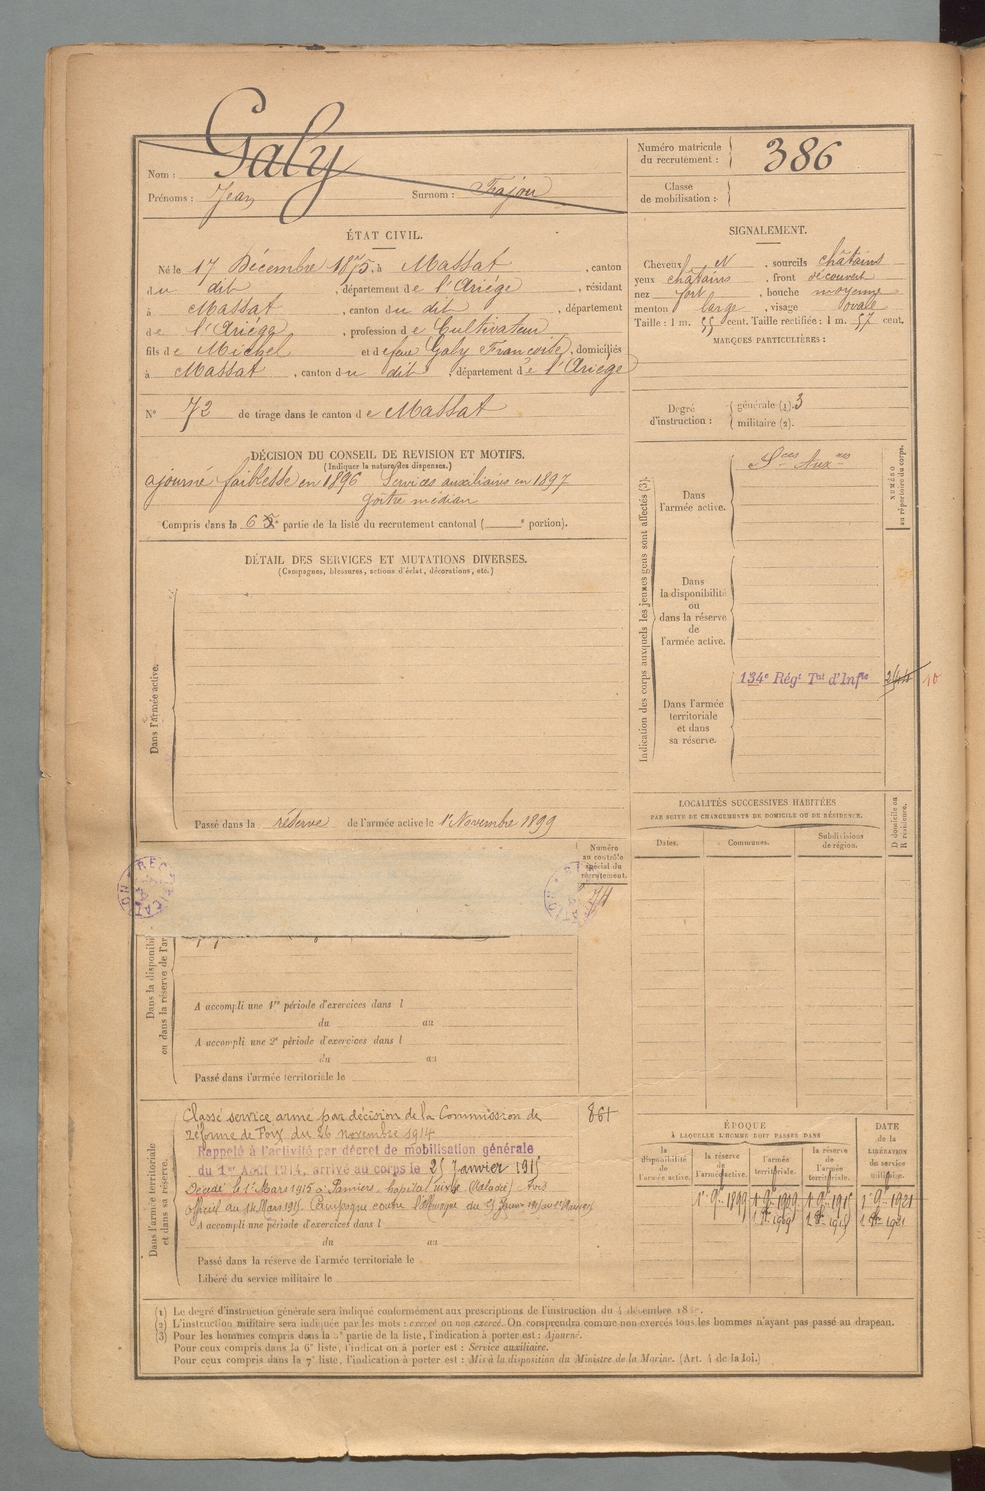 Galy
Nom :
Prénoms : Jean Surnom : Fajou
Numéro matricule du recrutement : 386
Classe de mobilisation :
ÉTAT CIVIL.
Né le 17 Décembre 1875, à Massat, canton
du dit, département de l'Ariége, résidant
à Massat, canton du dit, département
de l'Ariége, profession de Cultivateur
fils de Michel et de feue Galy Françoise, domiciliés
à Massat, canton du dit, département de l'Ariége
N° 72 de tirage dans le canton de Massat
SIGNALEMENT.
Cheveux N, sourcils châtains
yeux châtains, front découvert
nez fort, bouche moyenne
menton large, visage ovale
Taille : 1 m. 55 cent. Taille rectifiée : 1 m. 57 cent.
MARQUES PARTICULIÈRES :
Degré d'instruction : générale (1). 3
militaire (2).
DÉCISION DU CONSEIL DE REVISION ET MOTIFS.
(Indiquer la nature des dispenses.)
ajourné faiblesse en 1896 Services auxiliaires en 1897
goître médian
Compris dans la 6e partie de la liste du recrutement cantonal ( e portion).
DÉTAIL DES SERVICES ET MUTATIONS DIVERSES.
(Campagnes, blessures, actions d'éclat, décorations, etc.)
Dans l'armée active.
Passé dans la réserve de l'armée active le 1er Novembre 1899
Indication des corps auxquels les jeunes gens sont affectés (3).
NUMÉRO au répertoire du corps.
Dans l'armée active.
Sces Auxres
Dans la disponibilité ou dans la réserve de l'armée active.
Dans l'armée territoriale et dans sa réserve.
134e Régt Tial d'Infie
10
LOCALITÉS SUCCESSIVES HABITÉES
PAR SUITE DE CHANGEMENTS DE DOMICILE OU DE RÉSIDENCE.
Dates. Communes. Subdivisions de région.
D domicile ou R résidence.
Numéro au contrôle spécial du recrutement.
74
RECTIFICATION
Dans la disponibil
ou dans la réserve de l'ar
A accompli une 1re période d'exercices dans l
du au
A accompli une 2e période d'exercices dans l
du au
Passé dans l'armée territoriale le
Dans l'armée territoriale et dans sa réserve.
Classé service armé par décision de la Commission de
réforme de Foix du 26 novembre 1914
861
Rappelé à l'activité par décret de mobilisation générale
du 1er Août 1914, arrivé au corps le 25 Janvier 1915
Décédé le 1er Mars 1915 à Pamiers, hôpital mixte (Maladie) Avis
officiel du 14 Mars 1915. Campagne contre l'Allemagne du 25 Janv. 1915 au 1er Mars 1915
A accompli une période d'exercices dans l
du au
Passé dans la réserve de l'armée territoriale le
Libéré du service militaire le
ÉPOQUE
À LAQUELLE L'HOMME DOIT PASSER DANS
la disponibilité de l'armée active. la réserve de l'armée active. l'armée territoriale. la réserve de l'armée territoriale.
DATE de la LIBÉRATION du service militaire.
1er 9bre 1899 1er 9bre 1909 1er 9bre 1915 1er 9bre 1921
1er 8bre 1909 1er 8bre 1915 1er 8bre 1921
(1) Le degré d'instruction générale sera indiqué conformément aux prescriptions de l'instruction du 4 décembre
(2) L'instruction militaire sera indiquée par les mots : exercé ou non exercé. On comprendra comme non exercés tous les hommes n'ayant pas passé au drapeau.
(3) Pour les hommes compris dans la 5e partie de la liste, l'indication à porter est : Ajourné.
Pour ceux compris dans la 6e liste, l'indication à porter est : Service auxiliaire.
Pour ceux compris dans la 7e liste, l'indication à porter est : Mis à la disposition du Ministre de la Marine. (Art. 4 de la loi.)